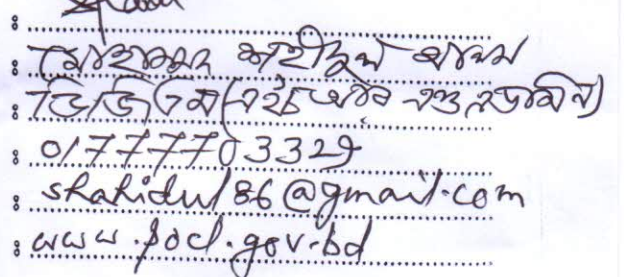 :
: মোহাম্মদ শহীদুল আলম
: ডিজিএম (এইচ আর এন্ড এডমিন)
: 01777703329
: shahidul86@gmail.com
: www.pocl.gov.bd